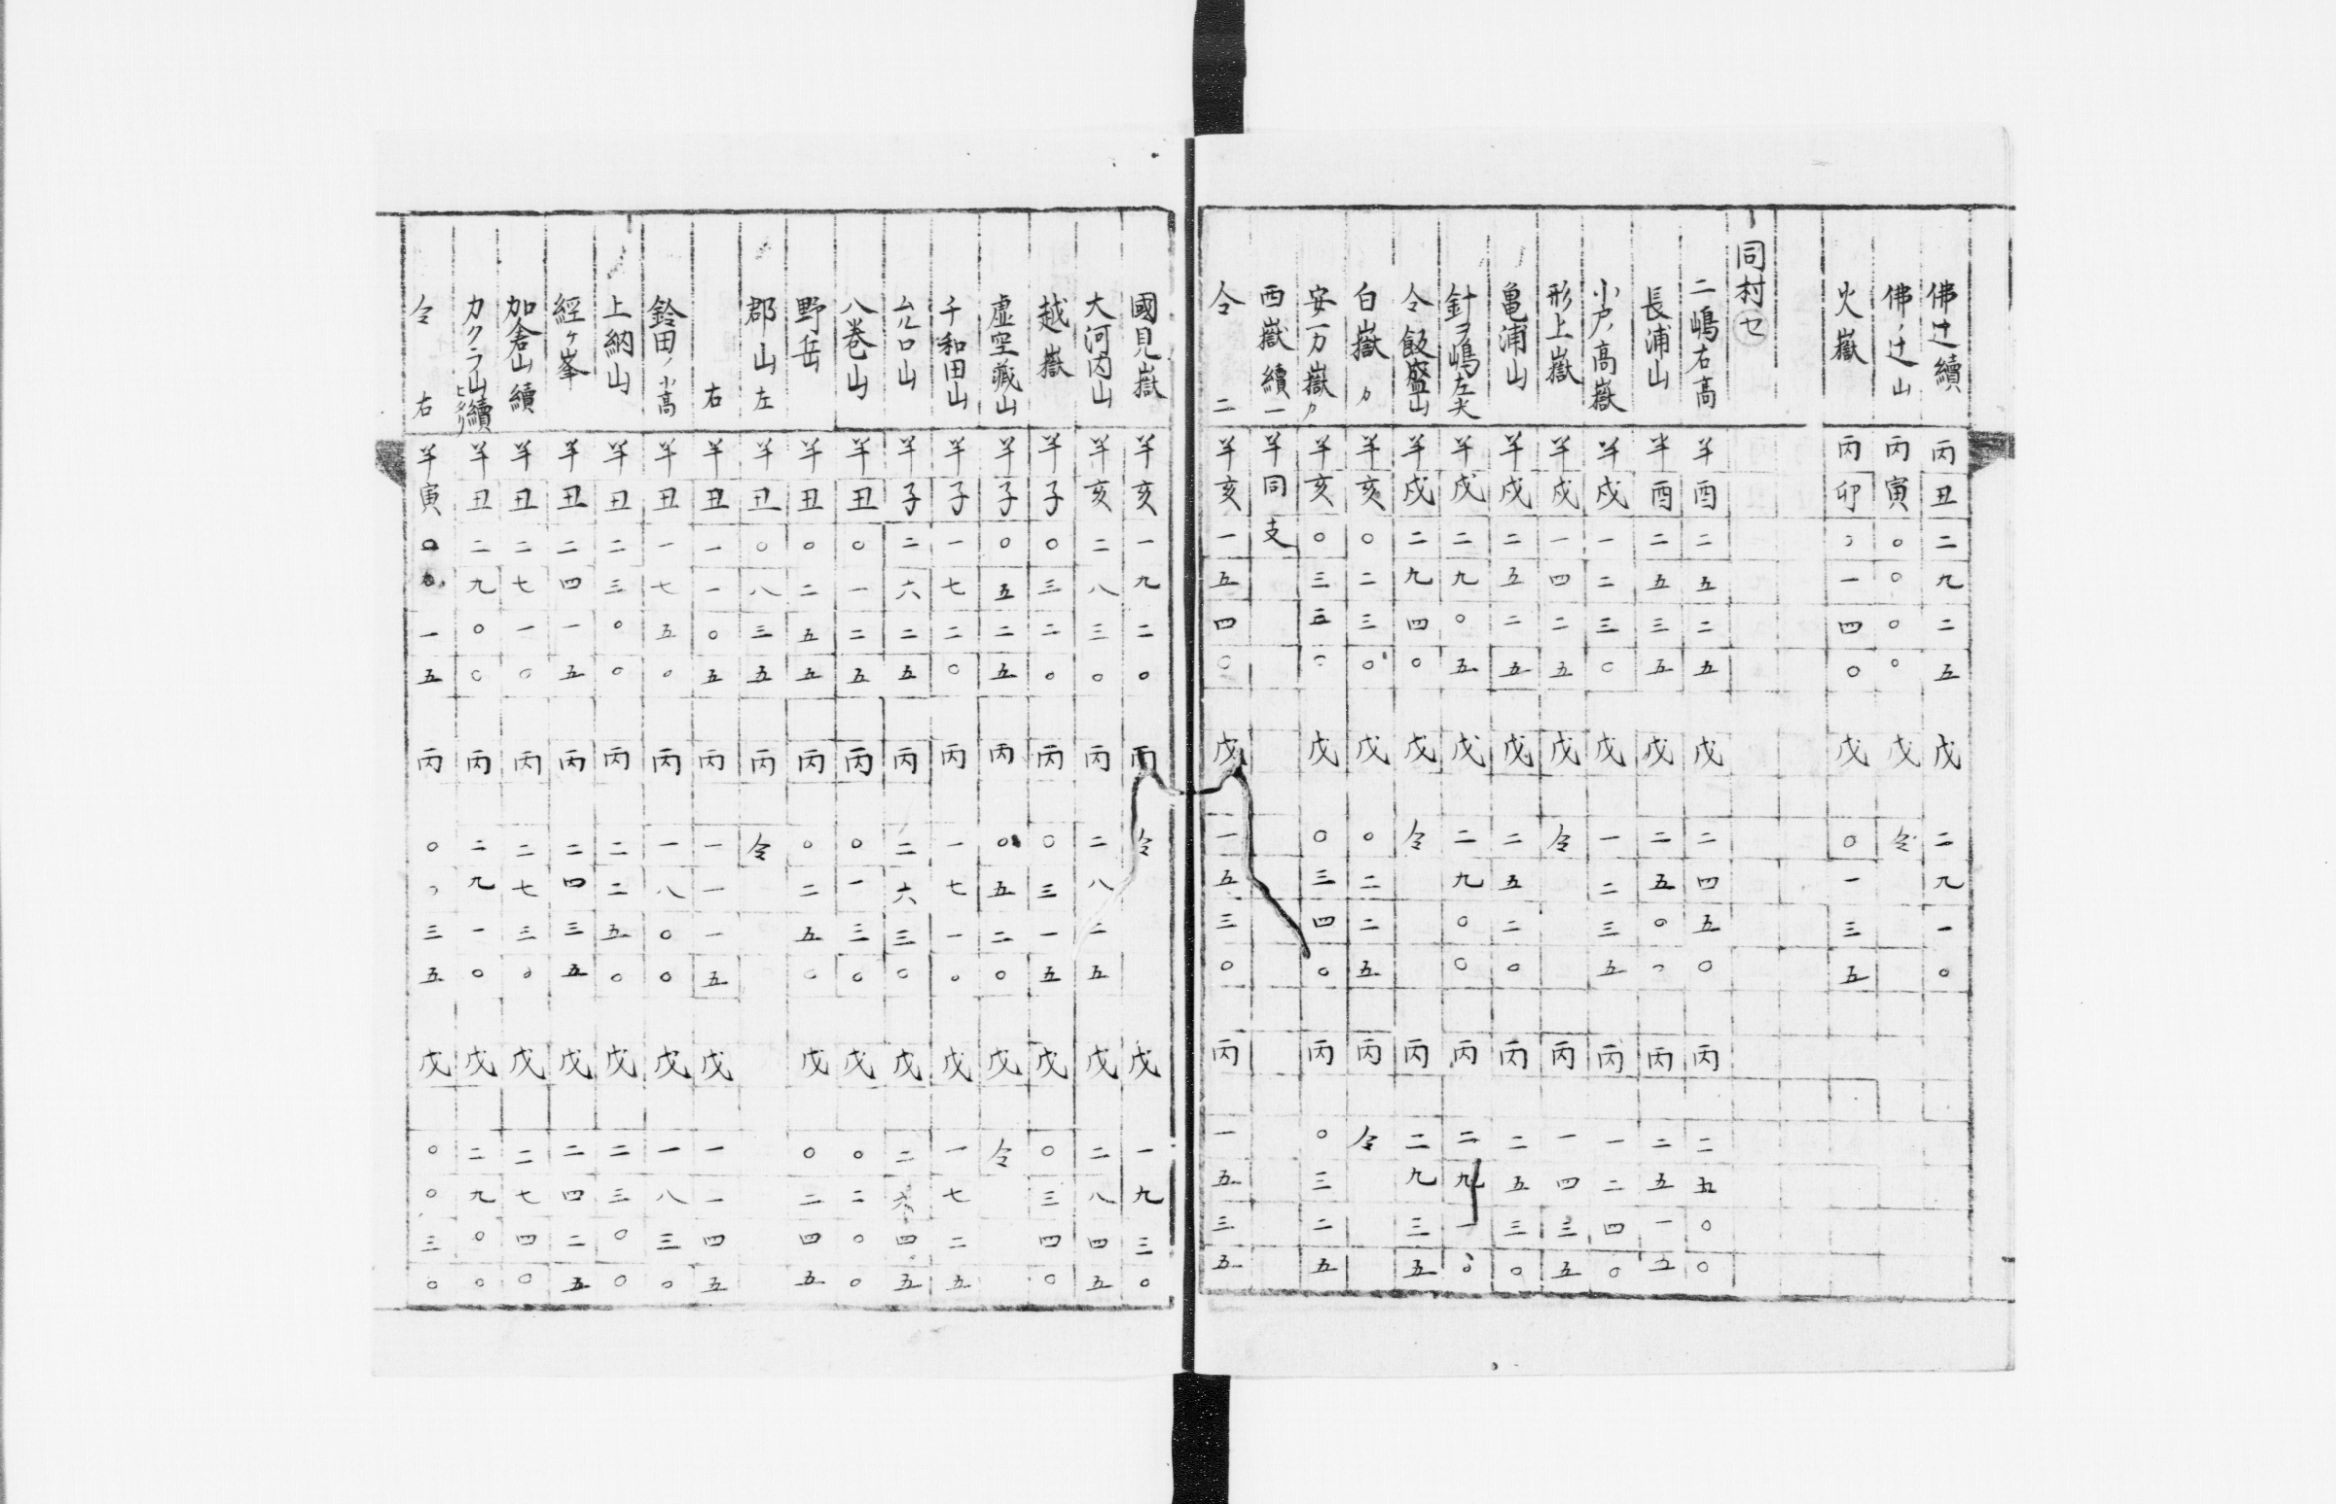 佛辻續 丙丑二九二五 戊二九一〇
佛ノ辻山 丙寅〇〇〇〇 戊仝
火嶽 丙卯〇一四〇 戊〇一三五
同村セ
二嶋右高 羊酉二五二五 戊二四五〇 丙二五〇〇
長浦山 羊酉二五三五 戊二五〇〇 丙二五一五
小戸ノ高嶽 羊戌一二三〇 戊一二三五 丙一二四〇
形上嶽 羊戌一四二五 戊仝 丙一四三五
亀浦山 羊戌二五二五 戊二五二〇 丙二五三〇
針ヲ嶋左尖 羊戌二九〇五 戊二九〇〇 丙二九一〇
仝飯盛山 羊戌二九四〇 戊仝 丙二九三五
白嶽カ 羊亥〇二三〇 戊〇二二五 丙仝
安一万嶽カ 羊亥〇三五〇 戊〇三四〇 丙〇三二五
西嶽續一 羊同支
仝二 羊亥一五四〇 戊一五三〇 丙一五三五
國見嶽 羊亥一九二〇 丙仝 戊一九三〇
大河内山 羊亥二八三〇 丙二八二五 戊二八四五
越嶽 羊子〇三二〇 丙〇三一五 戊〇三四〇
虚空藏山 羊子〇五二五 丙〇五二〇 戊仝
千和田山 羊子一七二〇 丙一七一〇 戊一七二五
ムルロ山 羊子二六二五 丙二六三〇 戊二六四五
八巻山 羊丑〇一二五 丙〇一三〇 戊〇二〇〇
野岳 羊丑〇二五五 丙〇二五〇 戊〇二四五
郡山左 羊丑〇八三五 丙仝
右 羊丑一一〇五 丙一一一五 戊一一四五
鈴田ノ小高 羊丑一七五〇 丙一八〇〇 戊一八三〇
上納山 羊丑二三〇〇 丙二二五〇 戊二三〇〇
經ヶ峯 羊丑二四一五 丙二四三五 戊二四二五
加倉山續 羊丑二七一〇 丙二七三〇 戊二七四〇
カクラ山續 羊丑二九〇〇 丙二九一〇 戊二九〇〇
仝右 羊寅〇〇一五 丙〇〇三五 戊〇〇三〇